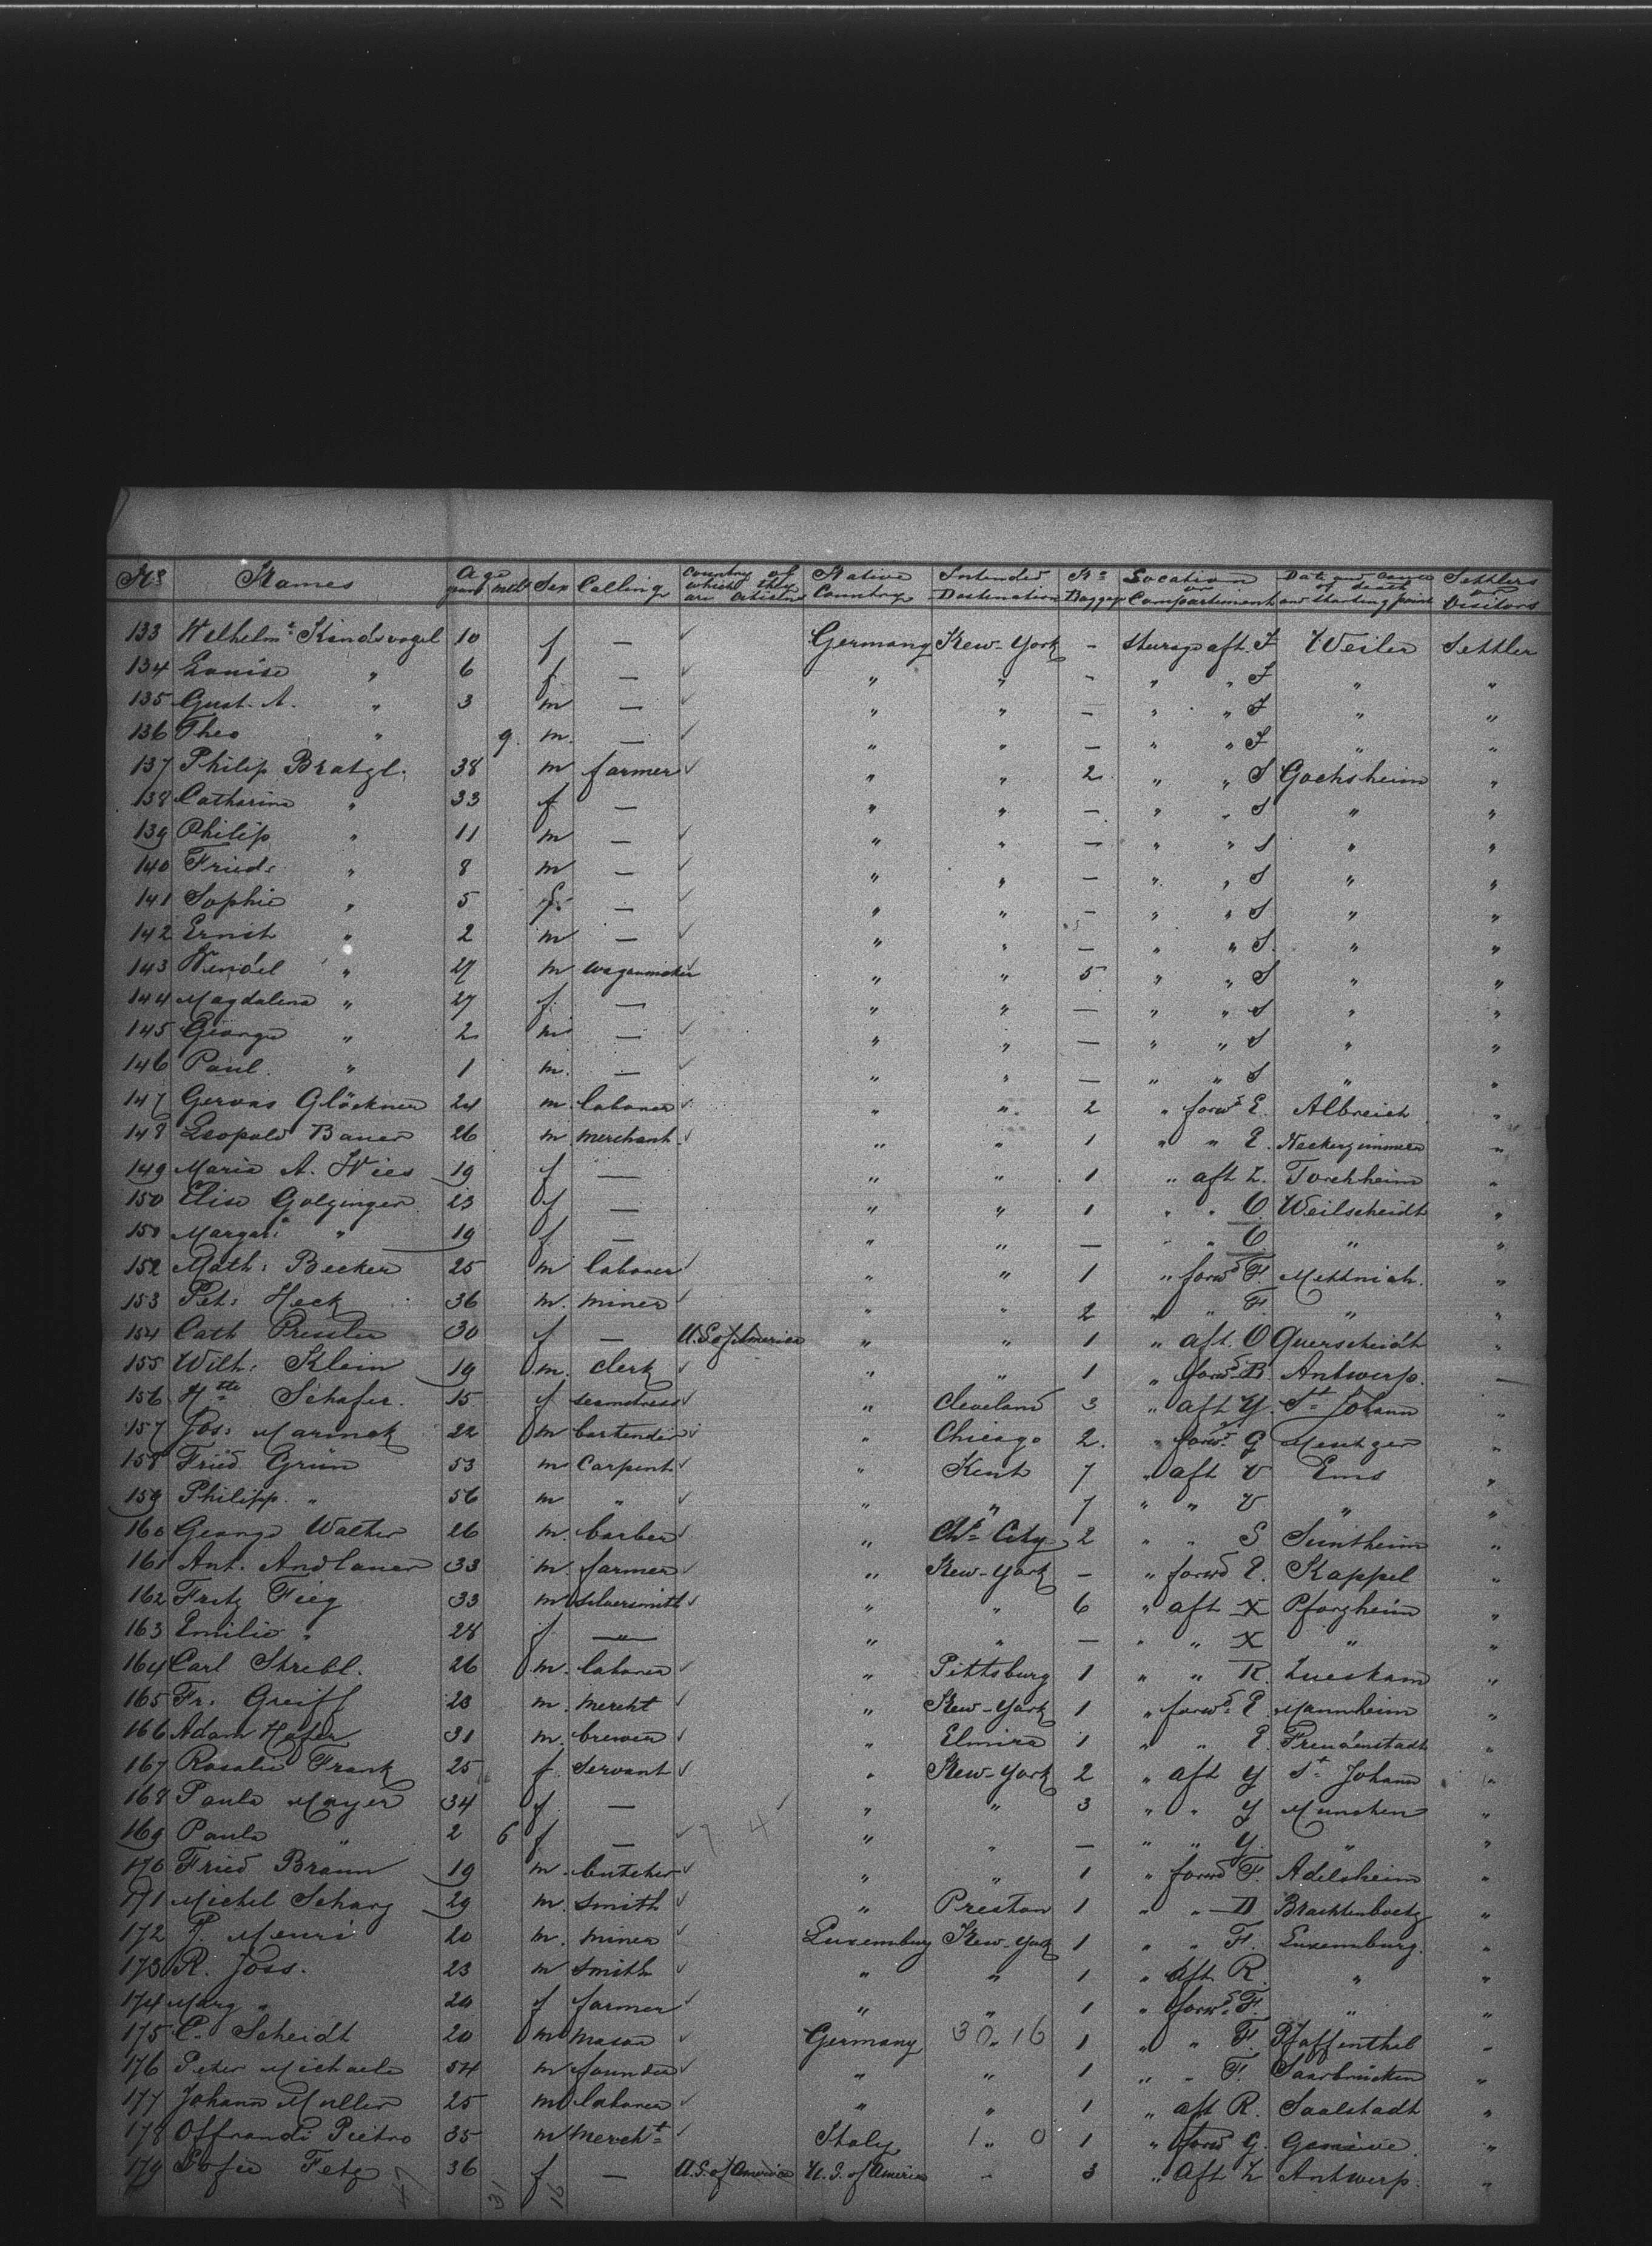 Nos Names Age years mths Sex Calling Country of which they are citizens Native Country Intended Destination No Baggage Location or Compartment Date and Cause of death and starting point Settlers or Visitors
133 Wilhelm. Kindsvogel 10 f — ✓ Germany New-York - Steerage aft. T Weiler Settler
134 Louise " 6 f — ✓ " " - " " T " "
135 Gust. A. " 3 m — ✓ " " - " " T " "
136 Theo " 9. m. — ✓ " " - " " T " "
137 Philip Bratzl. 38 m farmer ✓ " " 2 " " S Gochsheim "
138 Catharina " 33 f — " " - " " S " "
139 Philip " 11 m — ✓ " " - " " S " "
140 Fried: " 8 m — ✓ " " - " " S " "
141 Sophie " 5 f. — ✓ " " - " " S " "
142 Ernst " 2 m — ✓ " " - " " S. " "
143 Wendel " 27 m wagonmaker " " 5 " " S " "
144 Magdalena " 27 f. — " " - " " S " "
145 George " 2 m — ✓ " " - " " S " "
146 Paul. " 1 m. — ✓ " " - " " S " "
147 Gervas Glöckner 24 m. laborer ✓ " " 2 " forwd E. Albreich "
148 Leopold Bauer 26 m merchant. ✓ " " 1 " " E. Neckerzimmern "
149 Maria A. Wies 19 f — " " 1 " aft Z. Forchheim "
150 Elise Golzinger 23 f — " " 1 " " O. Weilscheidt "
151 Margar: " 19 f — " " — " " O " "
152 Math: Becker 25 m laborer ✓ " " 1 " forwd F. Mettnich. "
153 Pet: Heck 36 m. miner ✓ " " 2 " " F. " "
154 Cath Pressler 30 f — U.S. of America " " 1 " aft. O Querscheidt "
155 Wilh: Klein 19 m. clerk ✓ " " 1 " forwd B. Antwerp. —
156 Htte Schafer. 15 f seamstress ✓ " Cleveland 3 " aft Y. St Johann "
157 Jos: Marmek 22 m bartender ✓ " Chicago 2. " forwd G Mentzer "
158 Fried Grün 53 m Carpent ✓ " Kent 7 " aft V Ems "
159 Philipp. " 56 m " ✓ " " 7 " " V " "
160 George Walter 26 m. barber ✓ " City 2 " " S Suntheim "
161 Ant. Andlauer 33 m. farmer ✓ " New-York — " forwd E. Kappel "
162 Fritz Fieg 33 m silversmith ✓ " " 6 " aft X Pforzheim "
163 Emilie " 28 f — " " — " " X " "
164 Carl Strebl. 26 m. laborer ✓ " Pittsburg 1 " " R. "
165 Fr. Greiff 23 m. mercht ✓ " New-York 1 " forwd E Mannheim "
166 Adam Hofer 31 m. brewer ✓ " Elmira 1 " " E. Freudenstadt "
167 Rosalie Frank 25 f. servant ✓ " New-York 2 " aft Y St Johann "
168 Paula Mayer 34 f — " " 3 " " Y Munchen "
169 Paula " 2 6 f — ✓ " " — " " Y. " "
170 Fried Braun 19 m. butcher ✓ " " 1 " forwd F. Adelsheim "
171 Michel Scharz 29 m. smith ✓ " Preston 1 " " D "
172 P. Meuri 20 m. miner ✓ Luxemburg New-York 1 " " F. Luxemburg. "
173 R. Joss. 23 m smith ✓ " " 1 " aft R. " "
174 Marg " 24 f farmer ✓ " " 1 " forwd F. " "
175 C. Scheidt 20 m mason ✓ Germany 30 " 16 1 " " F. Pfaffenthal "
176 Peter Michaela 54 m founder ✓ " " 1 " " F. Saarbrücken "
177 Johann Muller 25 m laborer ✓ " " 1 " aft R. Saalstadt "
178 Offrandi Pietro 35 m mercht ✓ Italy 1 " 0 1 " forwd G. Genève. "
179 Sofie Fetz 36 f — U.S. of America U.S. of America " 3 " aft Z Antwerp. "
47 31 16